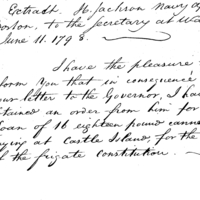 Extract. H. Jackson Navy Ag
oston, to the Secretary at Wa
June 11. 1798.
I have the pleasure
form You that in consequence
our letter to the Governor, I ha
tained an order from him for
loan of 16 eighteen pound canno
ying at Castle Island, for the
the frigate Constitution